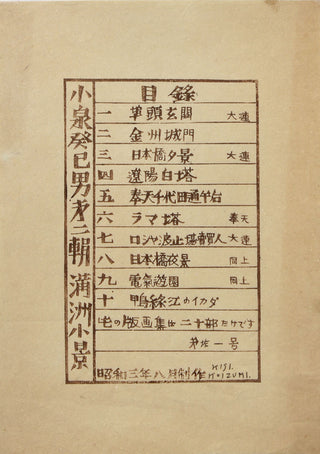 小泉癸巳男第二輯 満洲小景
目錄
一 埠頭玄関 大連
二 金州城門
三 日本橋夕景 大連
四 遼陽白塔
五 奉天千代田通
六 ラマ塔 奉天
七 ロシヤ波止場 大連
八 日本橋夜景 同上
九 電氣遊園 同上
十 鴨緑江のイカダ
此の版画集は二十部だけです
一号
昭和三年八月制作
KISI.
KOIZUMI.